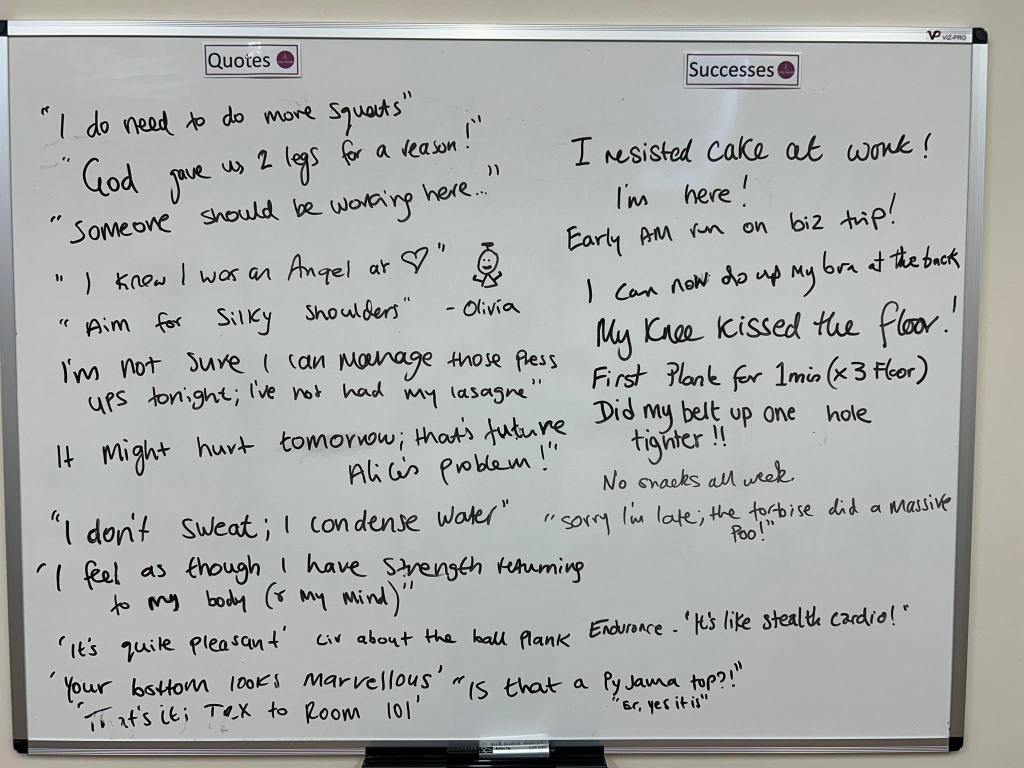 VP VIZ-PRO
Quotes
"I do need to do more squats"
"God gave us 2 legs for a reason!"
"Someone should be working here..."
"I knew I was an Angel at ♡"
"Aim for Silky Shoulders" - Olivia
I'm not sure I can manage those press
ups tonight; I've not had my lasagne"
It might hurt tomorrow; that's future
Alice's problem!"
"I don't sweat; I condense water"
"I feel as though I have strength returning
to my body (& my mind)"
'It's quite pleasant' Liv about the ball plank
'Your bottom looks marvellous'
'That's it; to Room 101'
Successes
I resisted cake at work!
I'm here!
Early AM run on biz trip!
I can now do up my bra at the back
My Knee kissed the floor!
First Plank for 1min (x3 Floor)
Did my belt up one hole
tighter!!
No snacks all week
"sorry I'm late; the tortoise did a massive
Poo!"
Endurance - "It's like stealth cardio!"
"Is that a Pyjama top?!"
"Er, yes it is"